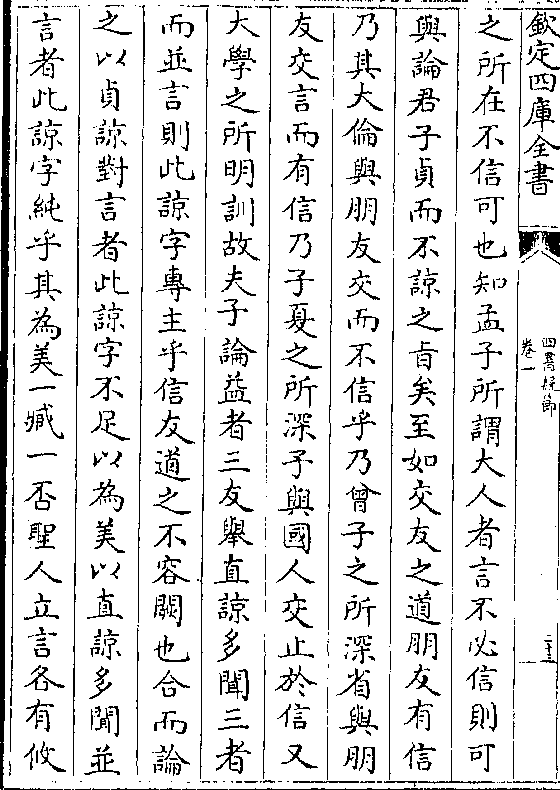 欽定四庫全書
四書標節
卷一
二十三
之所在不信可也知孟子所謂大人者言不必信則可
與論君子貞而不諒之旨矣至如交友之道朋友有信
乃其大倫與朋友交而不信乎乃曾子之所深省與朋
友交言而有信乃子夏之所深予與國人交止於信又
大學之所明訓故夫子論益者三友舉直諒多聞三者
而並言則此諒字專主乎信友道之不容闕也合而論
之以貞諒對言者此諒字不足以為美以直諒多聞並
言者此諒字純乎其為美一臧一否聖人立言各有攸